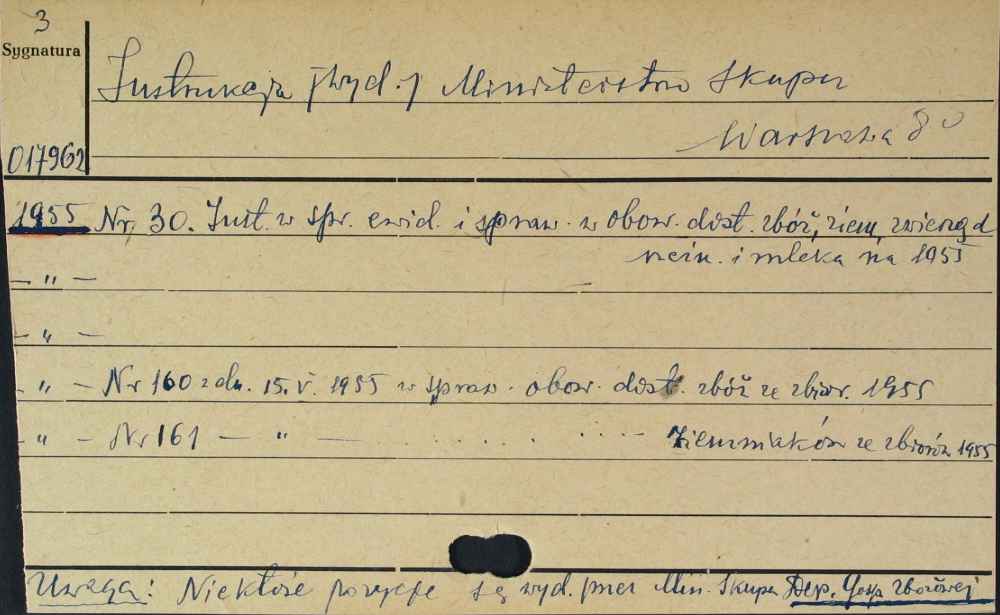 3
Sygnatura
017962
Instrukcja [wyd.] Ministerstwo Skupu
Warszawa 8°
1955 Nr. 30. Inst. w spr. ewid. i spraw. z obow. dost. zbóż, ziem, zwierząd
rzeźn. i mleka na 1955
— " —
— " —
— " — Nr 160 z dn. 15.V. 1955 w spraw. obow. dost. zbóż ze zbior. 1955
— " — Nr 161 — " — . . . . . . . . . ziemniaków ze zbiorów 1955
Uwaga: Niektóre pozycje są wyd. przez Min. Skupu Dep. Gosp. Zbożowej